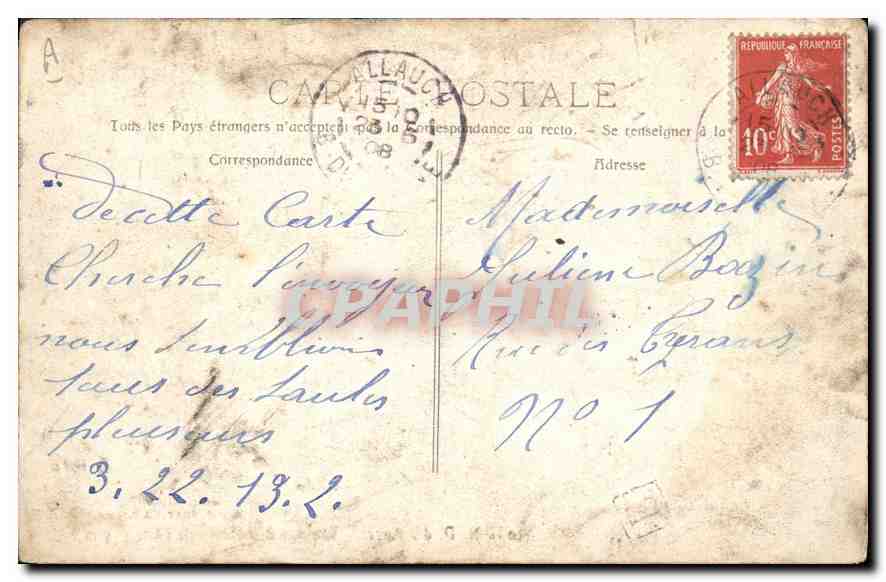 A
CARTE POSTALE
Tous les Pays étrangers n'acceptent pas la Correspondance au recto. - Se renseigner à la
Correspondance
Adresse
ALLAUCH
15
23 5
08
REPUBLIQUE FRANÇAISE
10c
POSTES
De cette Carte
Cherche l'envoyeur
nous
tous des
plusieurs
3. 22. 13. 2.
Mademoiselle
Juliene Bazin
Rue des
No 1
CPAPHIL